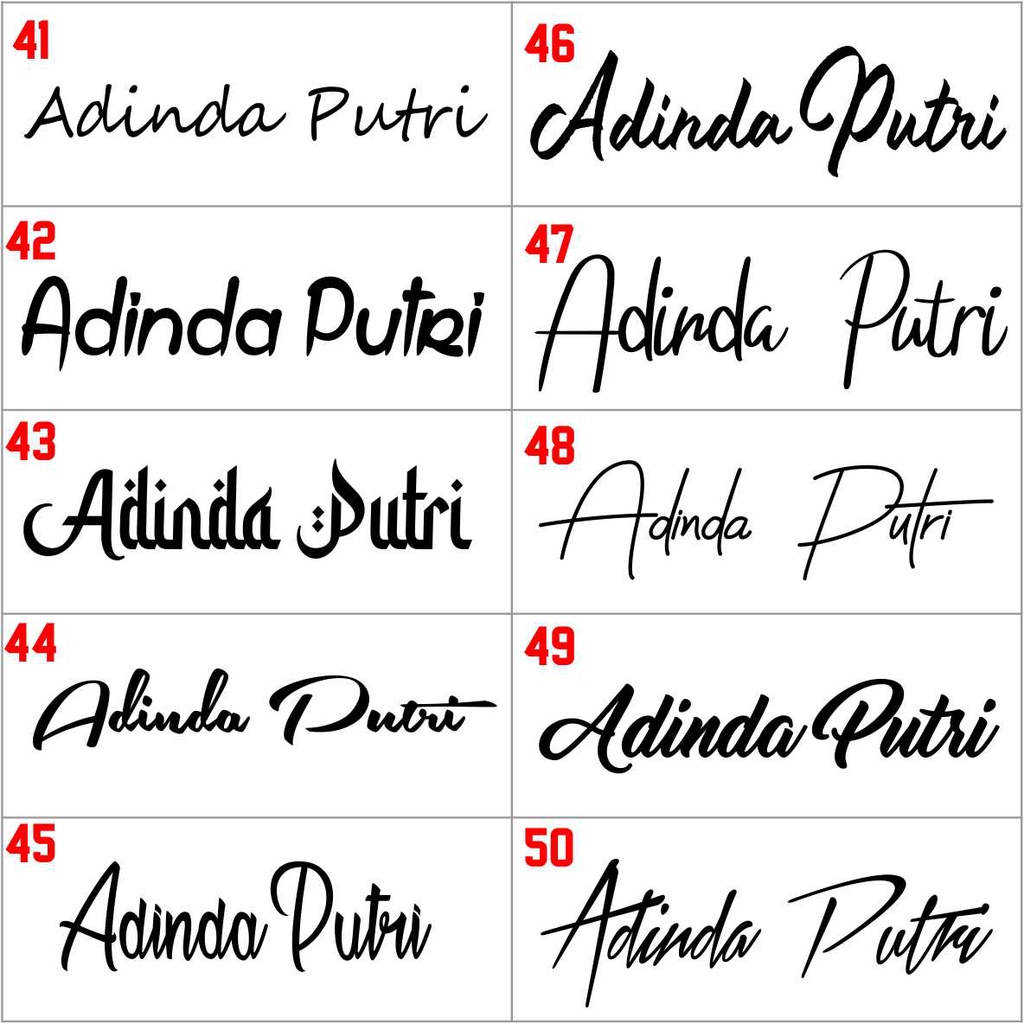 41
Adinda Putri
46
Adinda Putri
42
Adinda Putri
47
Adinda Putri
43
Adinda Putri
48
Adinda Putri
44
Adinda Putri
49
Adinda Putri
45
Adinda Putri
50
Adinda Putri